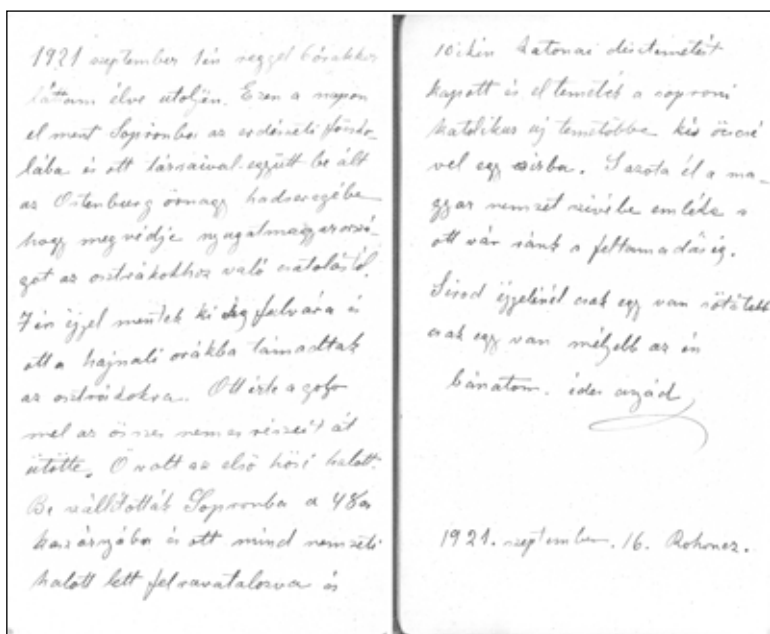 1921 szeptember 1én reggel 6órakkor
láttam élve utoljén. Ezen a napon
el ment Sopronba az erdészeti főisko-
lába és ott társaival együtt be ált
az Ostenburg őrnagy hadseregébe
hogy megvédje nyugatmagyarorszá-
got az osztrákokhoz való csatolástól.
7én éjjel mentek ki Ágfalvára és
ott a hajnali orákba támadtak
az osztrákokra. Ott érte a golyo
mel az összes nemes részeit át
ütötte. Ő volt az első hősi halott.
Be szállították Sopronba a 48as
kaszárnyába és ott mind nemzeti
halott lett felravatalozva és
10ikén katonai dísztemetést
kapott és el temeték a soproni
katolikus uj temetöbbe kis öcscsé
vel egy sirba. S azota él a ma-
gyar nemzet szivébe emléke s
ott vár ránk a feltamadásig.
Sirod éjjelénél csak egy van sötétebb
csak egy van mélyebb az én
bánatom. édes anyád
1921. szeptember. 16. Rohoncz.